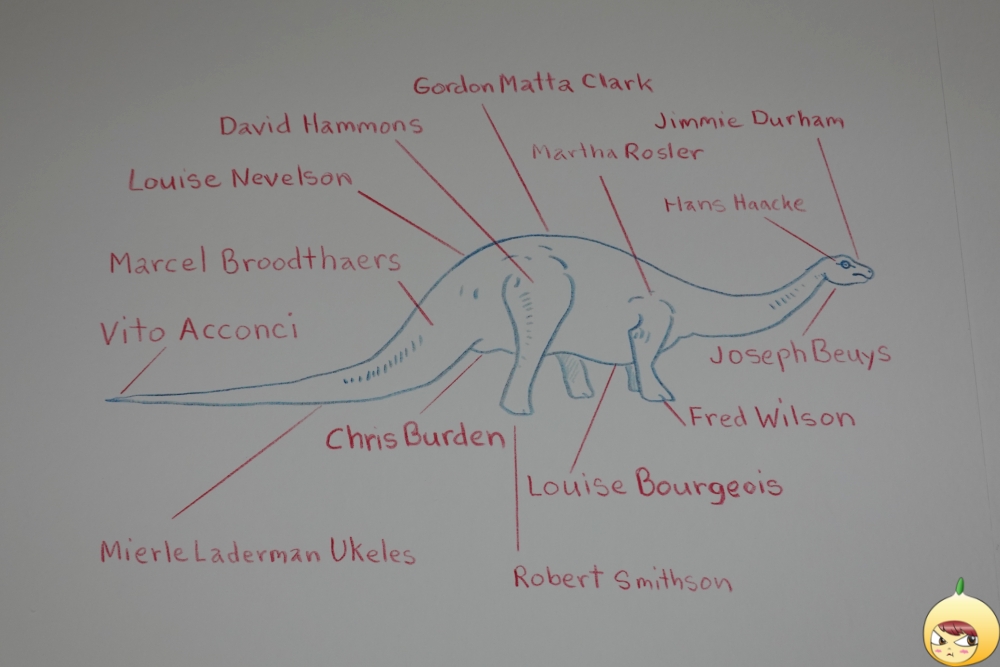 Gordon Matta Clark
David Hammons
Jimmie Durham
Martha Rosler
Louise Nevelson
Hans Haacke
Marcel Broodthaers
Vito Acconci
Joseph Beuys
Fred Wilson
Chris Burden
Louise Bourgeois
Mierle Laderman Ukeles
Robert Smithson